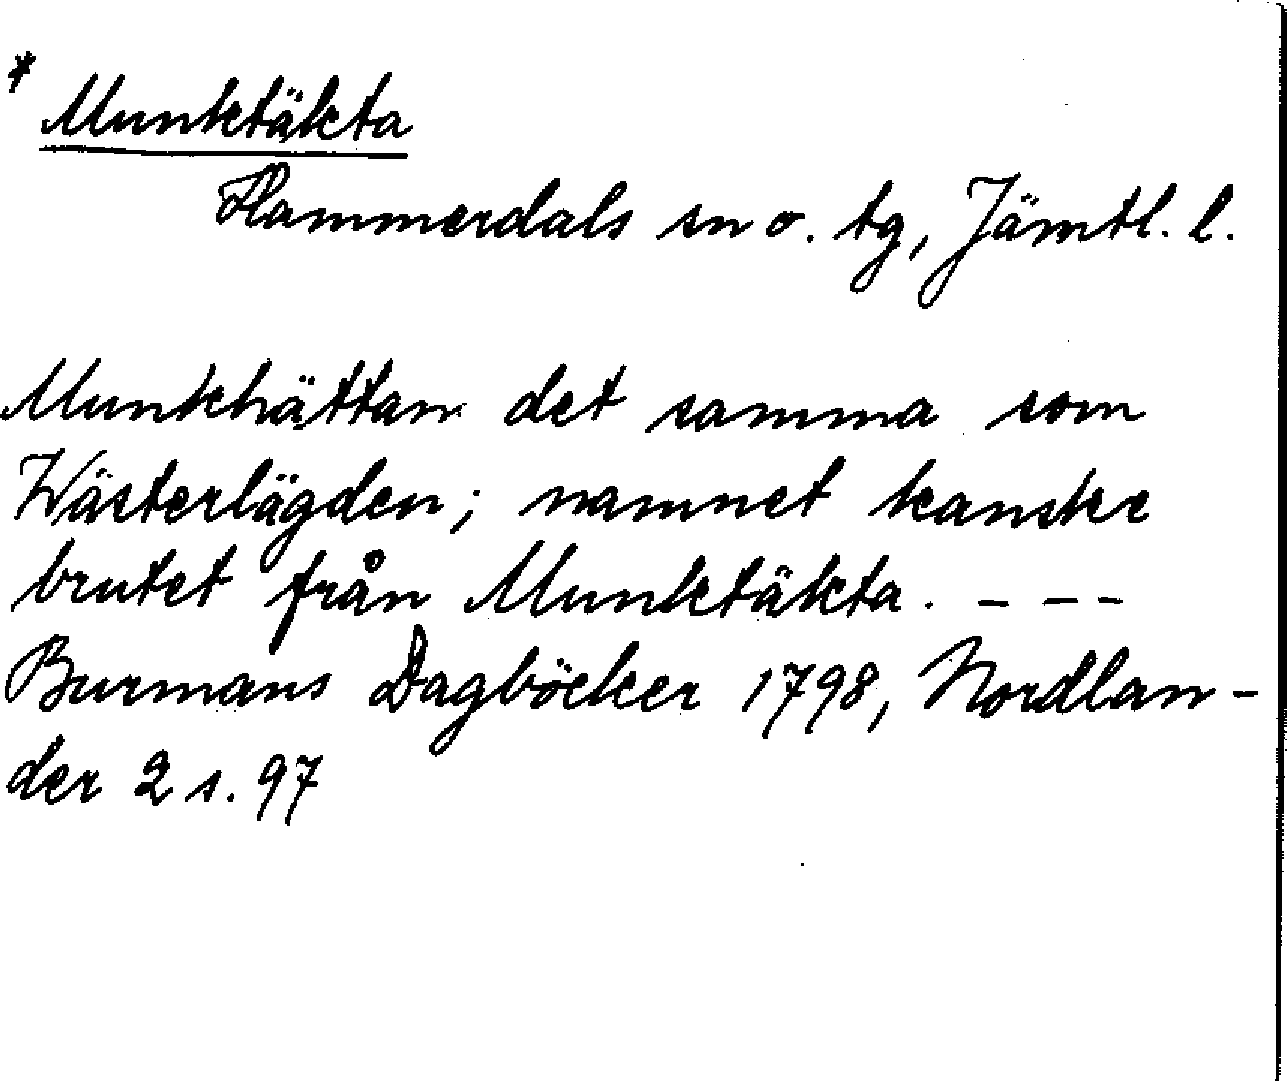 * Munktäkta
Hammerdals sn o. tg, Jämtl. l.
Munkhättan det samma som
Wästerlägden; namnet kanske
brutet från Munktäkta. - - -
Burmans Dagböcker 1798, Nordlan-
der 2 s. 97